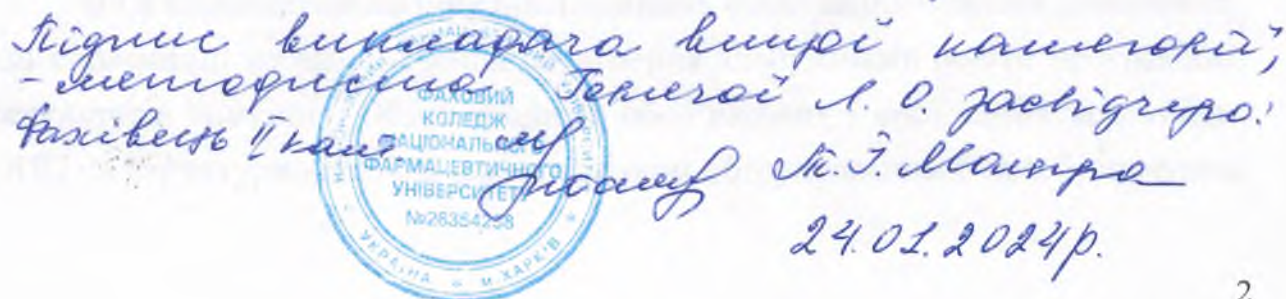 Підпис викладача вищої категорії,
- методиста Л. О. засвідчую:
Фахівець ІІ кат.
Т. Э.
24.01.2024р.
ФАХОВИЙ
КОЛЕДЖ
НАЦІОНАЛЬНОГО
ФАРМАЦЕВТИЧНОГО
УНІВЕРСИТЕТУ
№26354298
УКРАЇНА * М. ХАРКІВ *
2